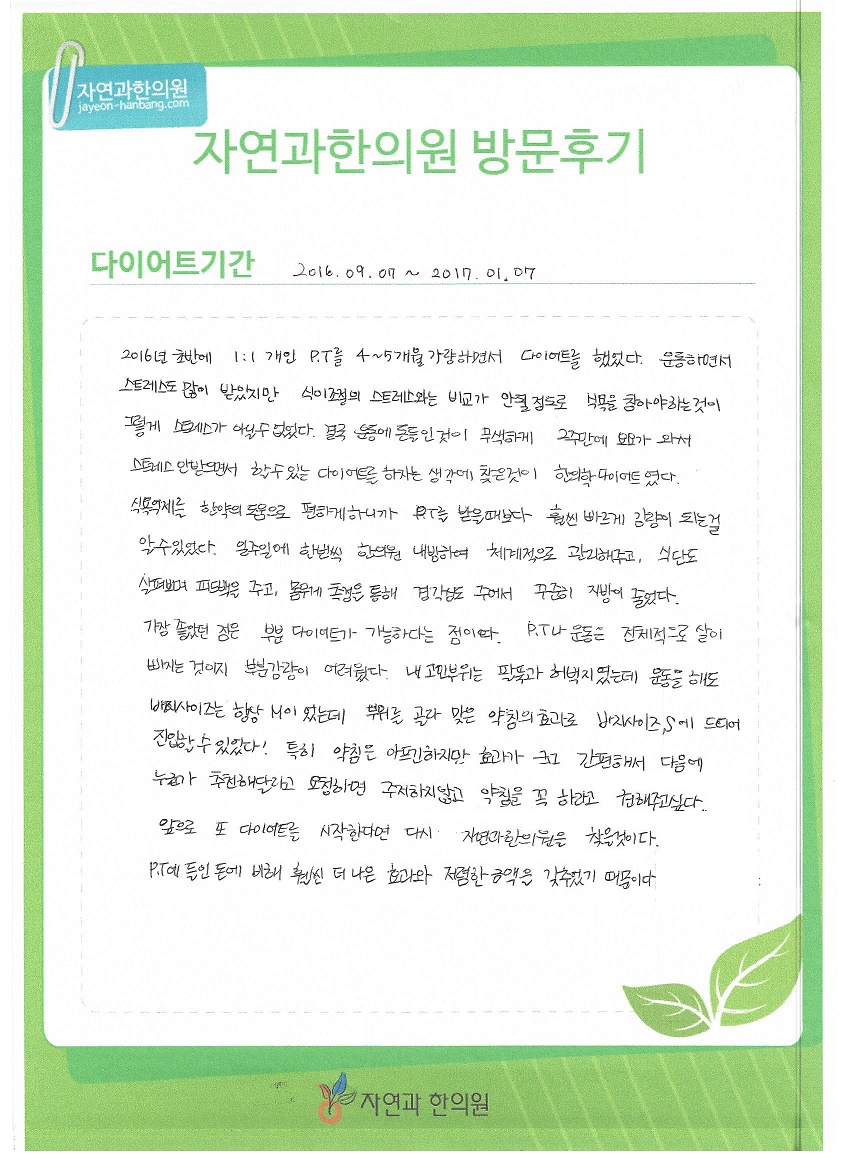 자연과한의원
jayeon-hanbang.com
자연과한의원 방문후기
다이어트기간 2016.09.07 ~ 2017.01.07
2016년 초반에 1:1 개인 P.T를 4~5개월가량하면서 다이어트를 했었다. 운동하면서
스트레스도 많이 받았지만 식이조절의 스트레스와는 비교가 안될정도로 식욕을 참아야하는것이
그렇게 스트레스가 아닐수없었다. 결국 운동에 돈들인것이 무색하게 2주만에 요요가 와서
스트레스 안받으면서 할수있는 다이어트를 하자는 생각에 찾은것이 한의학다이어트였다.
식욕억제를 한약의 도움으로 편하게하니까 P.T를 받을때보다 훨씬 빠르게 감량이 되는걸
알수있었다. 일주일에 한번씩 한의원 내방하여 체계적으로 관리해주고, 식단도
살펴보며 피드백을 주고, 몸무게 측정을 통해 경각심도 주어서 꾸준히 지방이 줄었다.
가장 좋았던 점은 부분 다이어트가 가능하다는 점이다. P.T나 운동은 전체적으로 살이
빠지는 것이지 부분감량이 어려웠다. 내 고민부위는 팔뚝과 허벅지였는데 운동을 해도
바지사이즈는 항상 M이었는데 부위를 골라 맞은 약침의 효과로 바지사이즈,S에 드디어
진입할수있었다! 특히 약침은 아프긴하지만 효과가 크고 간편해서 다음에
누군가 추천해달라고 요청하면 주저하지않고 약침을 꼭 하라고 권해주고싶다..
앞으로 또 다이어트를 시작한다면 다시 자연과한의원을 찾을것이다.
P.T에 들인 돈에 비해 훨씬 더 나은 효과와 저렴한 금액을 갖추었기 때문이다
자연과 한의원